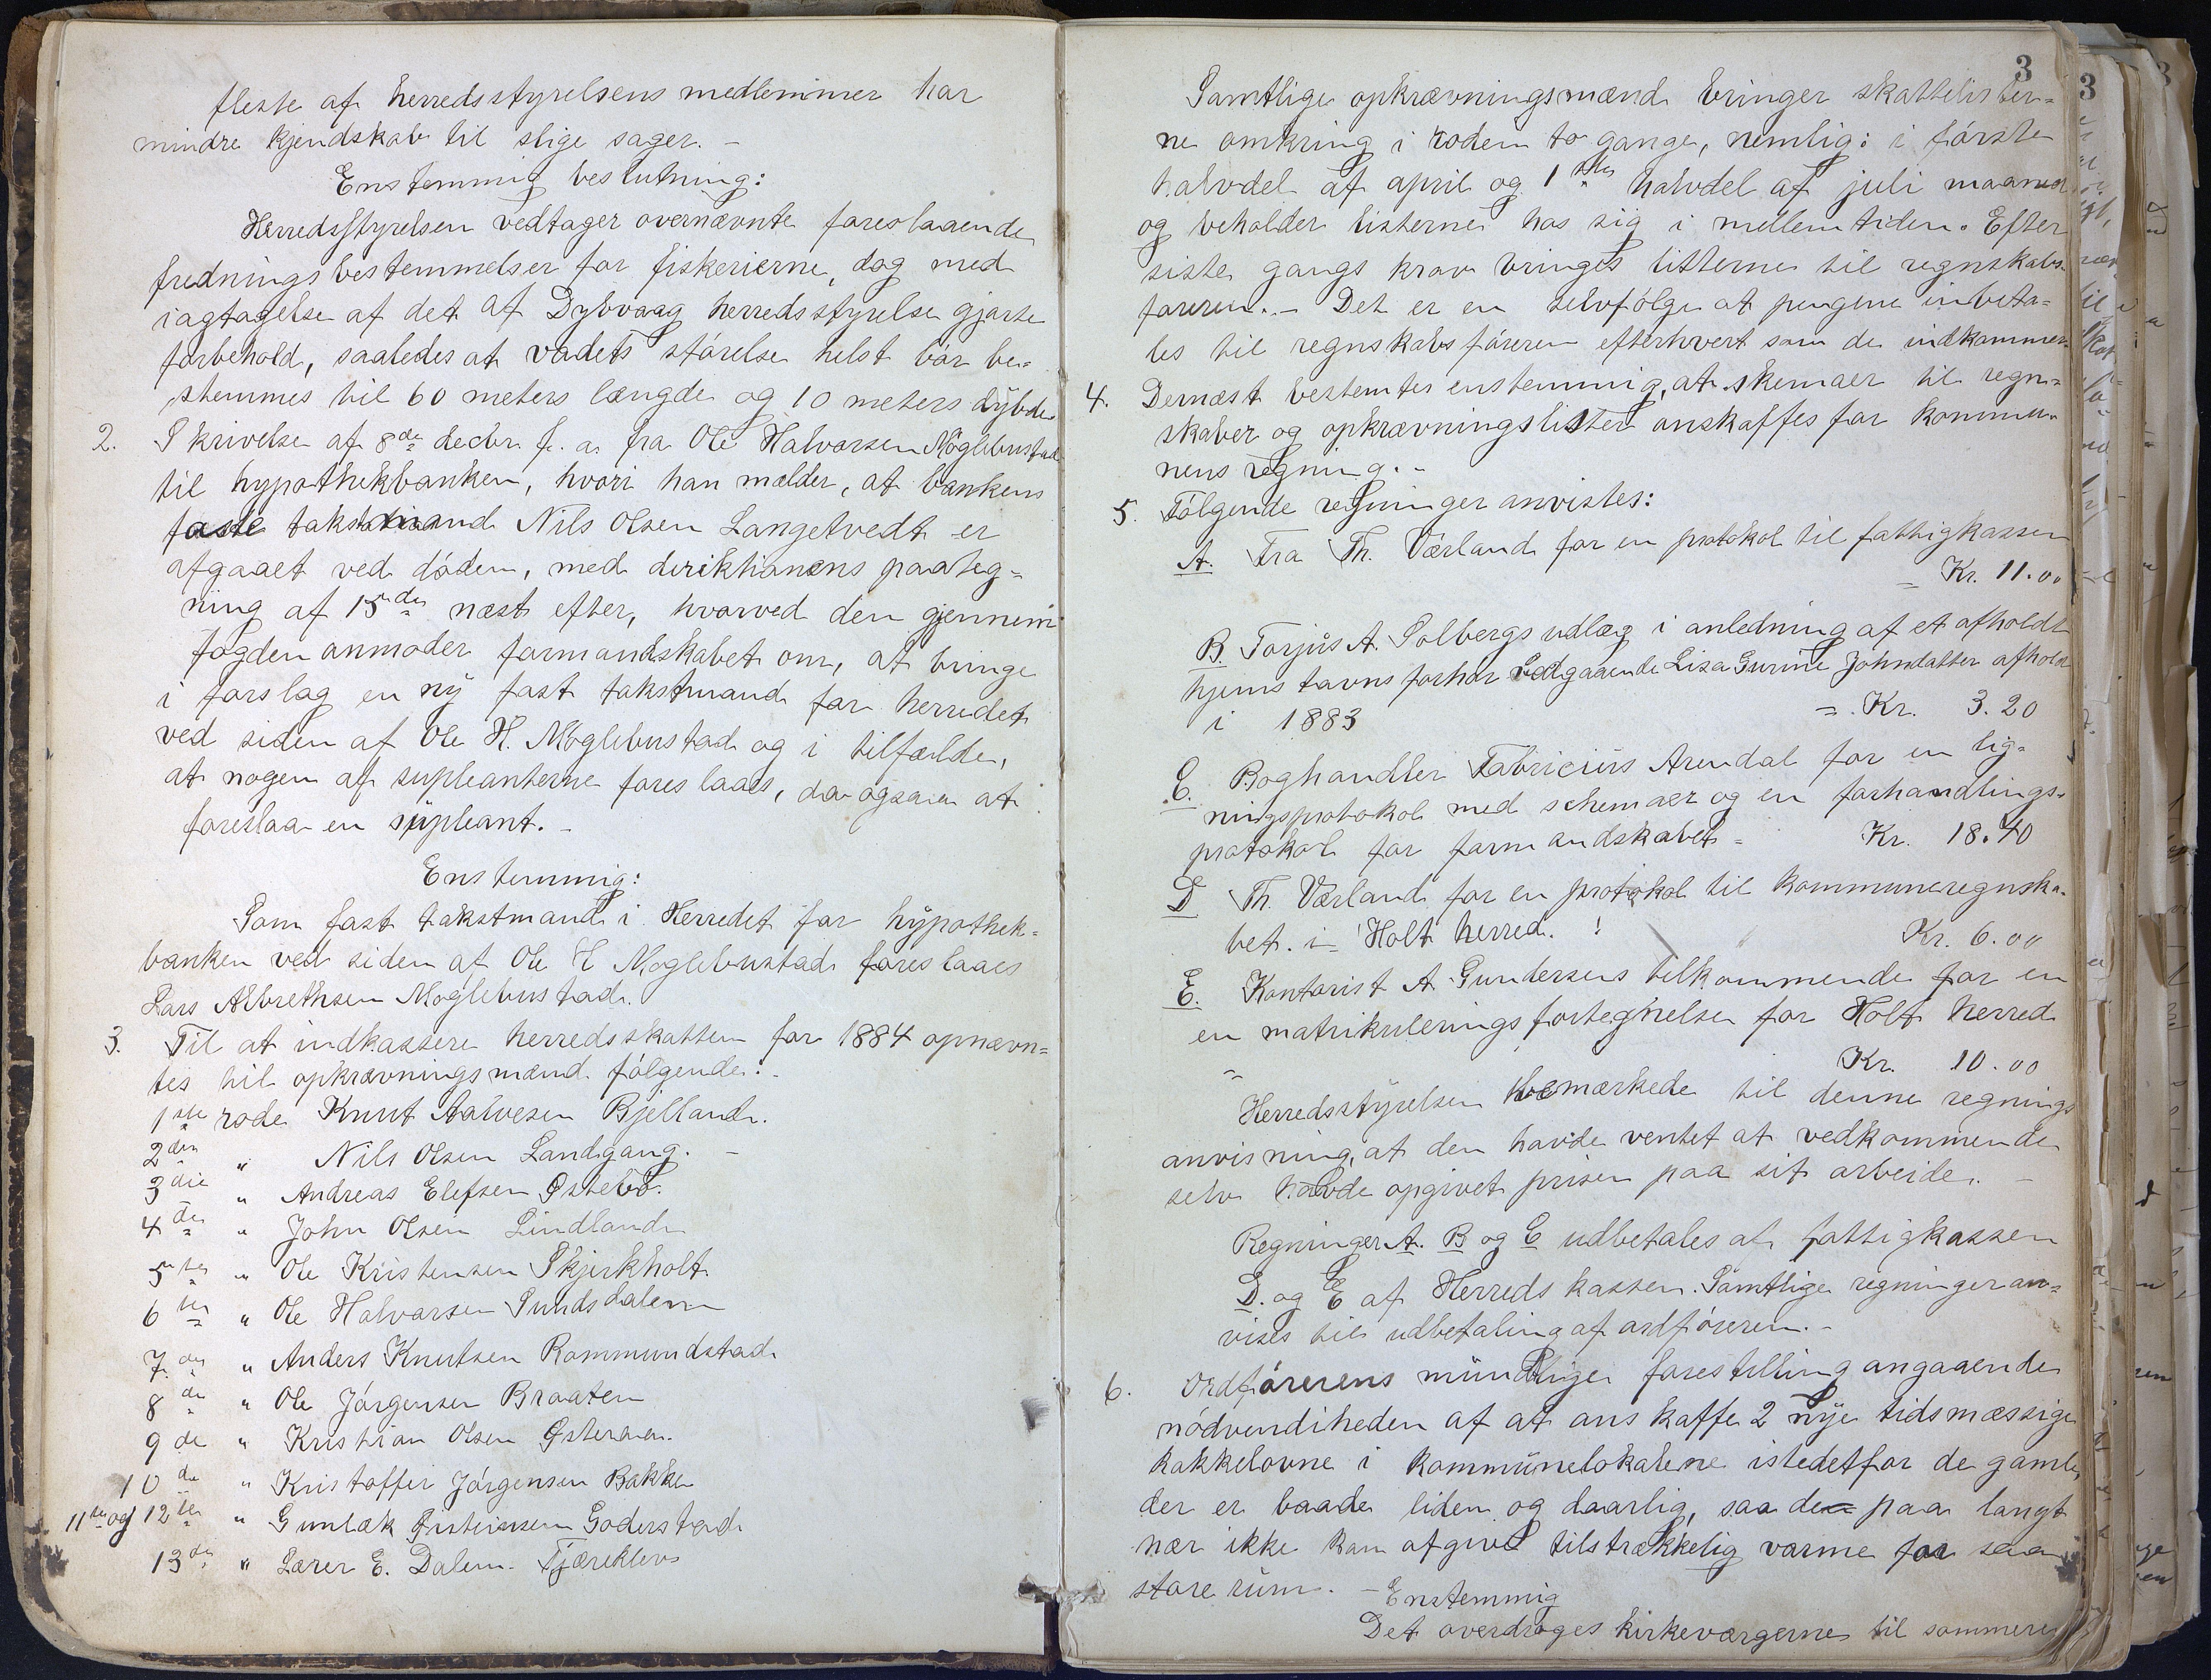 fleste af herredsstyrelsens medlemmer har
mindre kjendskab til slige sager. -
Enstemmig beslutning:
Herredsstyrelsen vedtager overnævnte foreslaaende
fredningsbestemmelser for fiskerierne, dog med
iagtagelse af det af Dybvaag herredsstyrelse gjorte
forbehold, saaledes at vadets störelse helst bör be-
stemmes til 60 meters længde og 10 meters dybde
2. Skrivelse af 8de decbr. f. a. fra Ole Halvorsen Möglebustad
til hypothekbanken, hvori han melder, at bankens
faste takstmand Nils Olsen Langetvedt er
afgaaet ved döden, med direktionens paateg-
ning af 15de næst efter, hvorved den gjennem
fogden anmoder formandskabet om, at bringe
i forslag en ny fast takstmand for herredet
ved siden af Ole H. Möglebustad og i tilfælde,
at nogen af supleanterne foreslaaes, da ogsaa at
foreslaa en supleant. -
Enstemmig:
Som fast takstmand i Herredet for hypothek-
banken ved siden af Ole H Moglebustad foreslaaes
Lars Albrethsen Moglebustad.
3. Til at indkassere herredsskatten for 1884 opnævn-
tes til opkrævningsmænd fölgende:
1ste rode Knut Aalvesen Bjelland.
2den " Nils Olsen Landgang. -
3die " Andreas Elefsen Östebö.
4de " John Olsen Lindland
5te " Ole Kristensen Skjerkholt.
6te " Ole Halvorsen Sundsdalen
7de " Anders Knutsen Rommundstad
8de " Ole Jörgensen Braaten
9de " Kristian Olsen Österaa.
10de " Kristoffer Jörgensen Bakke
11te og 12te " Gunlæk Goderstad
13de " Lærer E. Dalen. Fjæreklev
3
Samtlige opkrævningsmænd bringer skattelister-
ne omkring i roden to gange, nemlig: i förste
halvdel af april og 1ste halvdel af juli maaned
og beholder listerne hos sig i mellemtiden. Efter
siste gangs krav bringes listerne til regnskabs-
föreren. - Det er en selvfölge at pengene inbeta-
les til regnskabsföreren efterhvert som de indkommer.
4. Dernæst bestemtes enstemmig, at skemaer til regn-
skaber og opkrævningslister anskaffes for kommu-
nens regning. -
5. Fölgende regninger anvistes:
A. Fra Th. Værland for en protokol til fattigkassen
= Kr. 11.00
B. Torjus A. Solbergs udlæg i anledning af et afholdt
hjemstavnsforhör vedgaaende Lisa Gurine Johndatter afholdt
i 1883 = Kr. 3.20
C. Boghandler Fabricius Arendal for en lig-
ningsprotokol med schemaer og en forhandlings-
protokol for formandskabet = Kr. 18.40
D Th. Værland for en protokol til kommuneregnska-
bet. i Holt herred. Kr. 6.00
E. Kontorist A. Gundersens tilkommende for en
en matrikuleringsfortegnelse for Holt herred
= Kr. 10.00
Herredsstyrelsen bemærkede til denne regnings
anvisning, at den havde ventet at vedkommende
selv havde opgivet prisen paa sit arbeide. -
Regninger A. B og C udbetales af fattigkassen
D. og E af Herredskassen. Samtlige regninger an-
vises til udbetaling af ordföreren. -
6. Ordförerens mundtlige forestilling angaaende
nödvendiheden af at anskaffe 2 nye tidsmæssige
kakkelovne i kommunelokalerne istedetfor de gamle
der er baade liden og daarlig, saa de paa langt
nær ikke kan afgive tilstrækkelig varme for saa
store rum. - Enstemmig
Det overdrages kirkeværgerne til sommeren